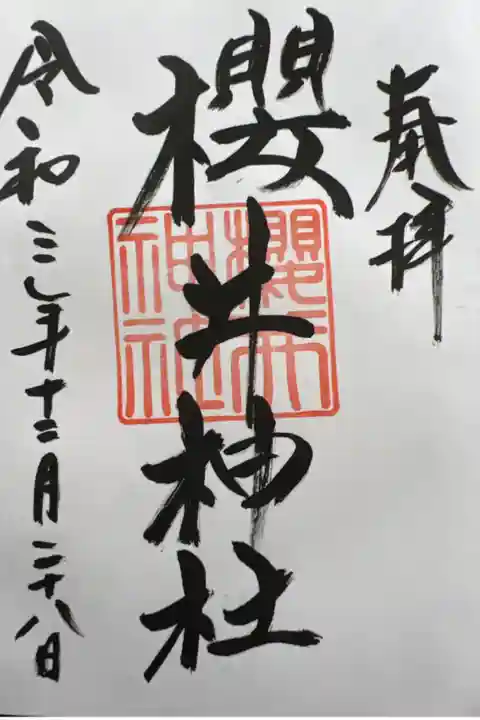 奉拝
櫻井神社
櫻井
神社
令和三年十二月二十八日